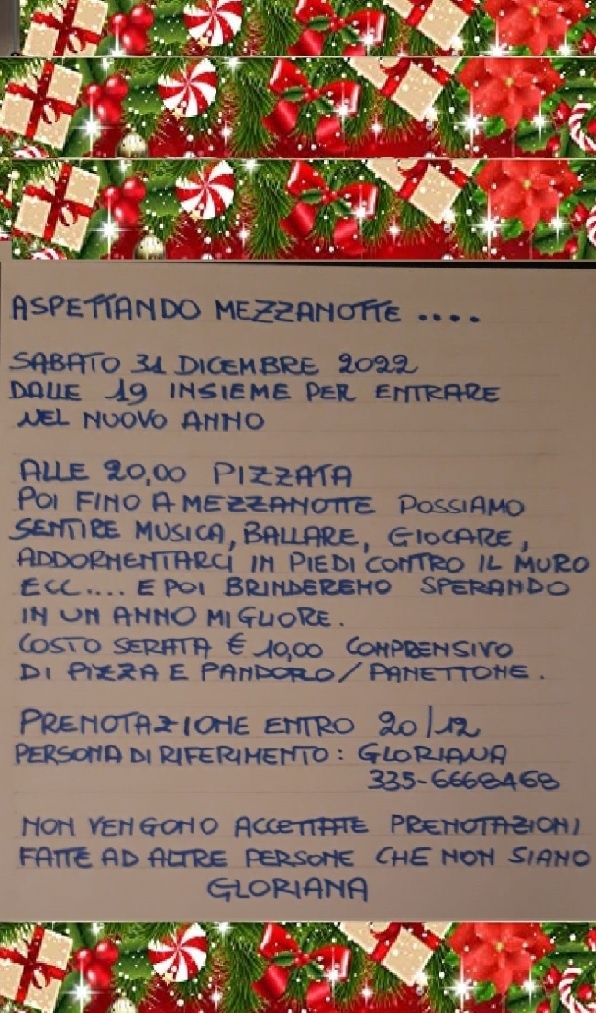 ASPETTANDO MEZZANOTTE ....
SABATO 31 DICEMBRE 2022
DALLE 19 INSIEME PER ENTRARE
NEL NUOVO ANNO
ALLE 20,00 PIZZATA
POI FINO A MEZZANOTTE POSSIAMO
SENTIRE MUSICA, BALLARE, GIOCARE,
ADDORMENTARCI IN PIEDI CONTRO IL MURO
ECC.... E POI BRINDEREMO SPERANDO
IN UN ANNO MIGLIORE.
COSTO SERATA € 10,00 COMPRENSIVO
DI PIZZA E PANDORO/PANETTONE.
PRENOTAZIONE ENTRO 20/12
PERSONA DI RIFERIMENTO: GLORIANA
335-6668468
NON VENGONO ACCETTATE PRENOTAZIONI
FATTE AD ALTRE PERSONE CHE NON SIANO
GLORIANA